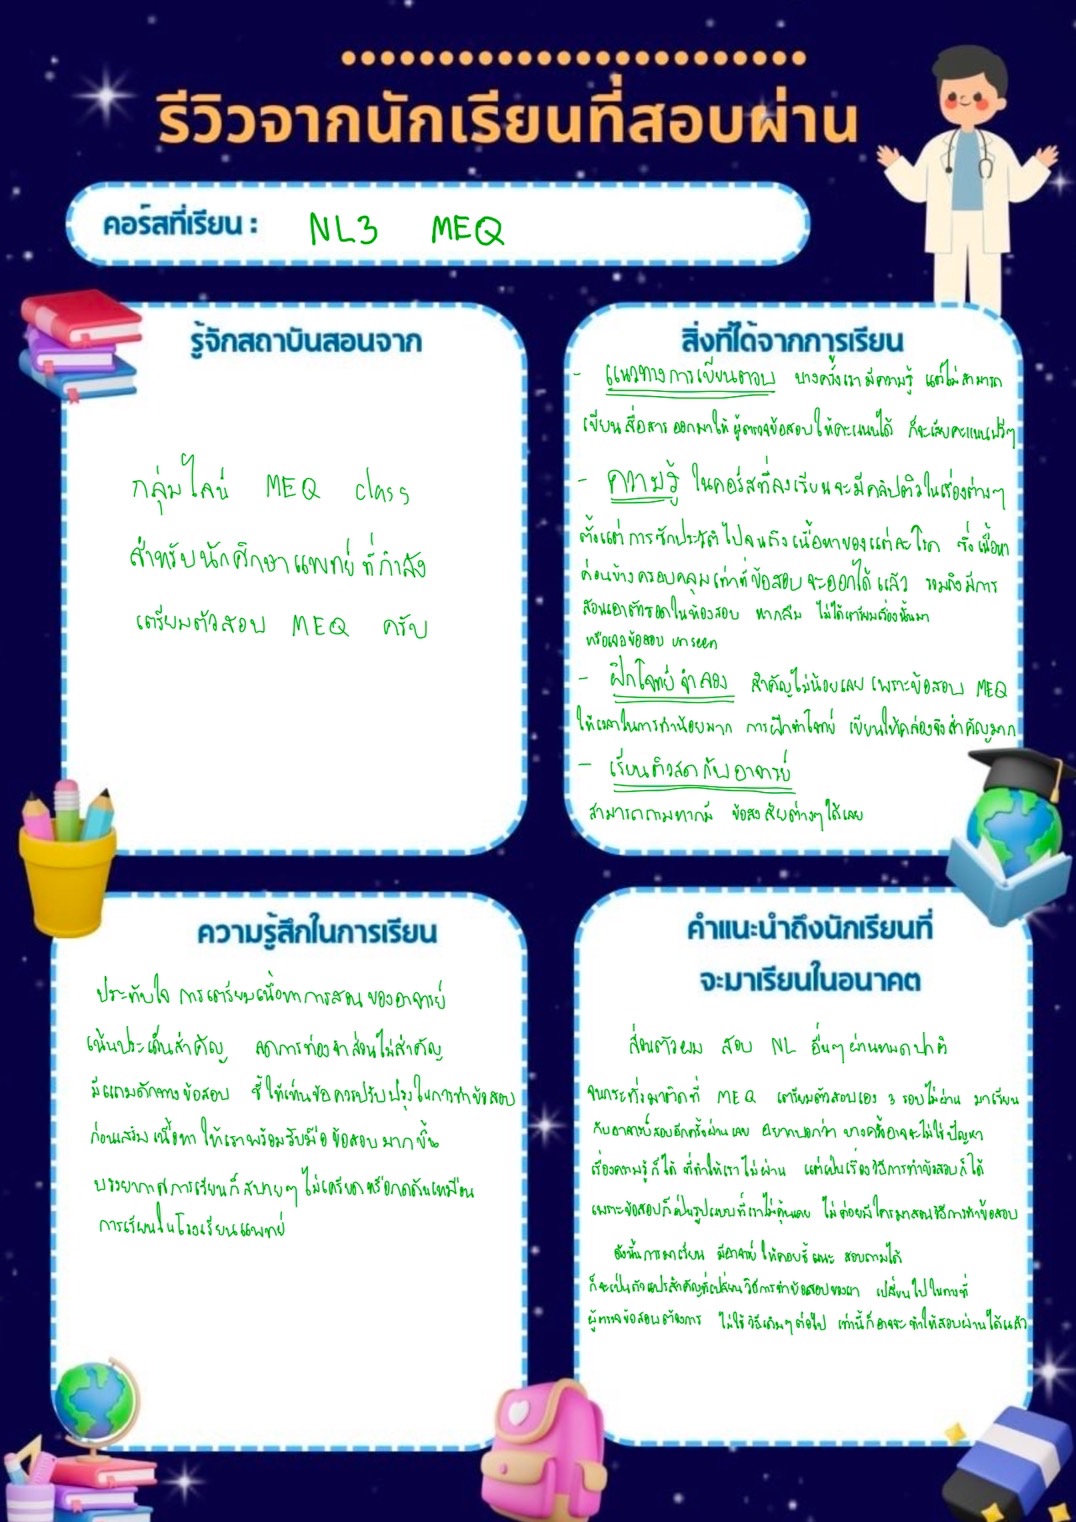 รีวิวจากนักเรียนที่สอบผ่าน
คอร์สที่เรียน : NL3 MEQ
รู้จักสถาบันสอนจาก
กลุ่มไลน์ MEQ class
สำหรับนักศึกษาแพทย์ที่กำลัง
เตรียมตัวสอบ MEQ ครับ
สิ่งที่ได้จากการเรียน
- แนวทางการเขียนตอบ บางครั้งเรามีความรู้ แต่ไม่สามารถ
เขียนสื่อสารออกมาให้ผู้ตรวจข้อสอบให้คะแนนได้ ก็จะเสียคะแนนฟรีๆ
- ความรู้ ในคอร์สที่ลงเรียนจะมีคลิปติวในเรื่องต่างๆ
ตั้งแต่การซักประวัติไปจนถึงเนื้อหาของแต่ละโรค ซึ่งเนื้อหา
ค่อนข้างครอบคลุมเท่าที่ข้อสอบจะออกได้แล้ว รวมถึงมีการ
สอนเอาตัวรอดในห้องสอบ หากลืม ไม่ได้เตรียมเรื่องนั้นมา
หรือเจอข้อสอบ unseen
- ฝึกโจทย์จำลอง สำคัญไม่น้อยเลย เพราะข้อสอบ MEQ
ให้เวลาในการทำน้อยมาก การฝึกทำโจทย์ เขียนให้คล่องจึงสำคัญมาก
- เรียนติวสดกับอาจารย์
สามารถถามหากมี ข้อสงสัยต่างๆได้เลย
ความรู้สึกในการเรียน
ประทับใจ การเตรียมเนื้อหาการสอนของอาจารย์
เน้นประเด็นสำคัญ ลดการท่องจำส่วนไม่สำคัญ
มีแถมดักทางข้อสอบ ชี้ให้เห็นข้อควรปรับปรุงในการทำข้อสอบ
ก่อนเสริมเนื้อหา ให้เราพร้อมรับมือข้อสอบมากขึ้น
บรรยากาศการเรียนก็สบายๆ ไม่เครียดหรือกดดันเหมือน
การเรียนในโรงเรียนแพทย์
คำแนะนำถึงนักเรียนที่
จะมาเรียนในอนาคต
ส่วนตัวผม สอบ NL อื่นๆผ่านหมดปกติ
จนกระทั่งมาติดที่ MEQ เตรียมตัวสอบเอง 3 รอบไม่ผ่าน มาเรียน
กับอาจารย์สอบอีกครั้งผ่านเลย อยากบอกว่า บางครั้งอาจจะไม่ใช่ปัญหา
เรื่องความรู้ก็ได้ ที่ทำให้เราไม่ผ่าน แต่เป็นเรื่องวิธีการทำข้อสอบก็ได้
เพราะข้อสอบก็เป็นรูปแบบที่เราไม่คุ้นเคย ไม่ค่อยมีใครมาสอนวิธีการทำข้อสอบ
ดังนั้นการมาเรียน มีอาจารย์ให้คอยชี้แนะ สอบถามได้
ก็จะเป็นตัวแปรสำคัญที่เปลี่ยนวิธีการทำข้อสอบของเรา เปลี่ยนไปในทางที่
ผู้ตรวจข้อสอบต้องการ ไม่ใช้วิธีเดิมๆต่อไป เท่านี้ก็อาจจะทำให้สอบผ่านได้แล้ว